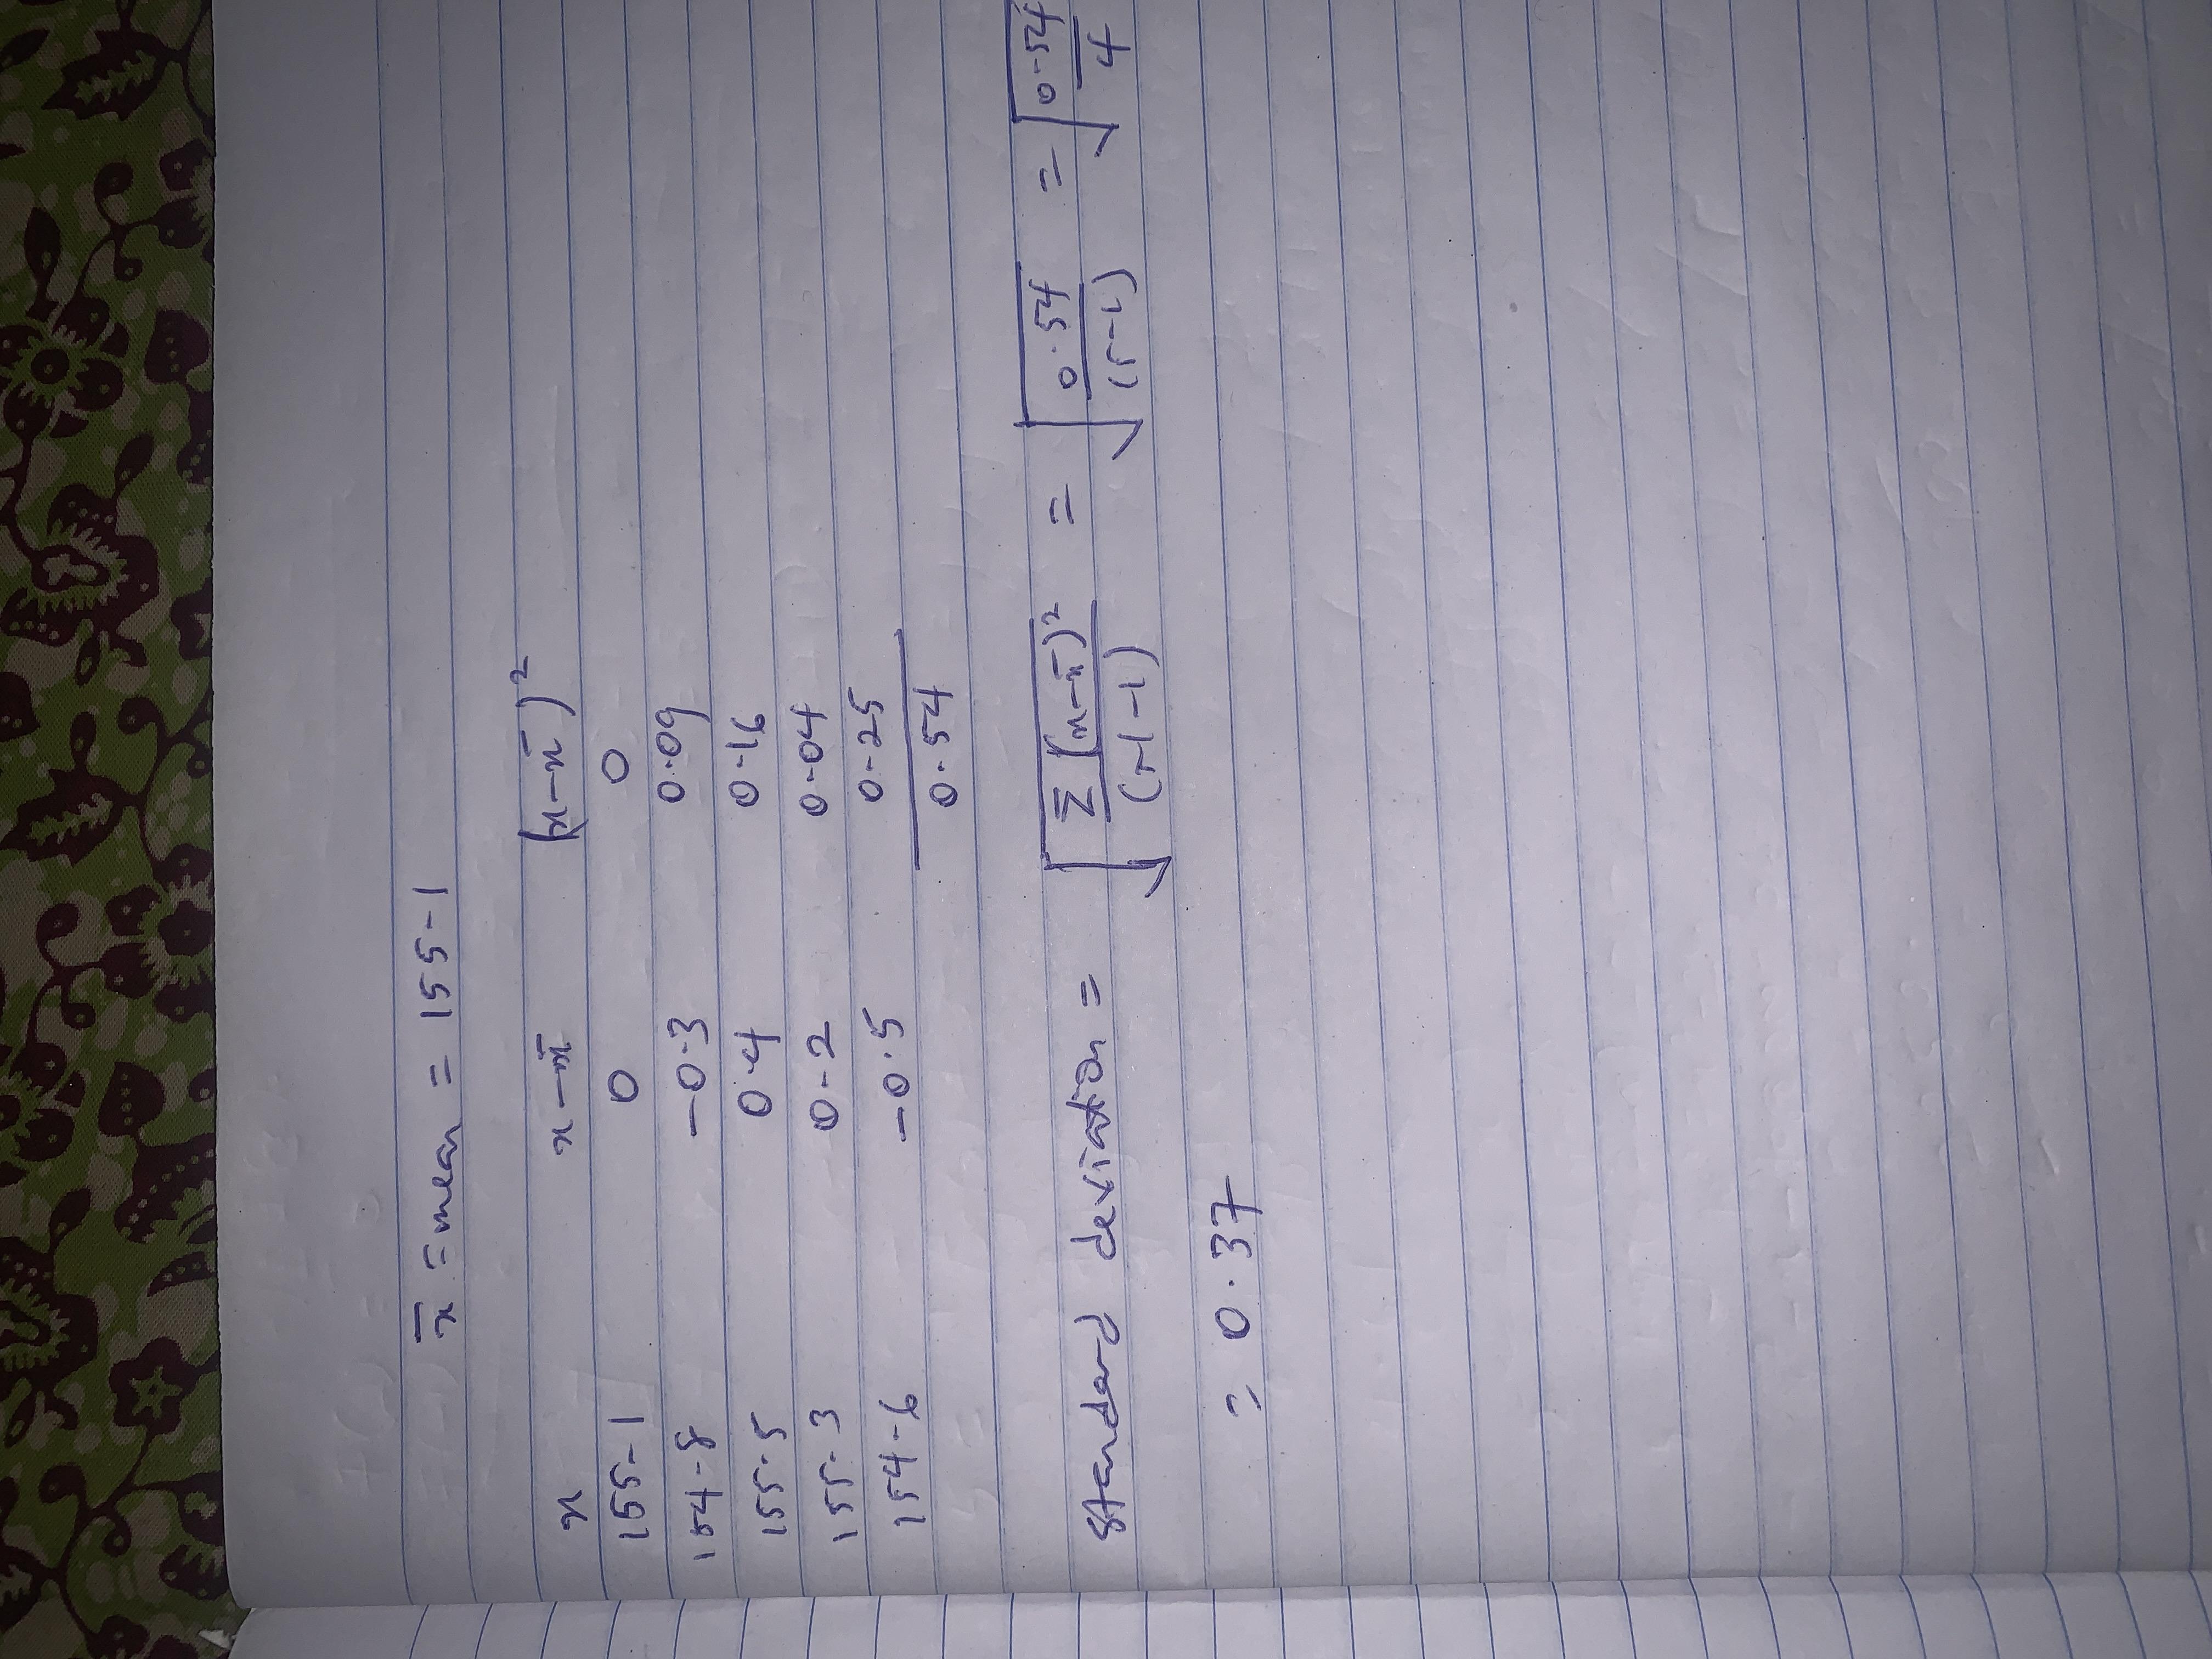 x̄ = mean = 155.1
x x-x̄ (x-x̄)²
155.1 0 0
154.8 -0.3 0.09
155.5 0.4 0.16
155.3 0.2 0.04
154.6 -0.5 0.25
0.54
Standard deviation = √(Σ(x-x̄)²/(n-1)) = √(0.54/(5-1)) = √(0.54/4)
= 0.37